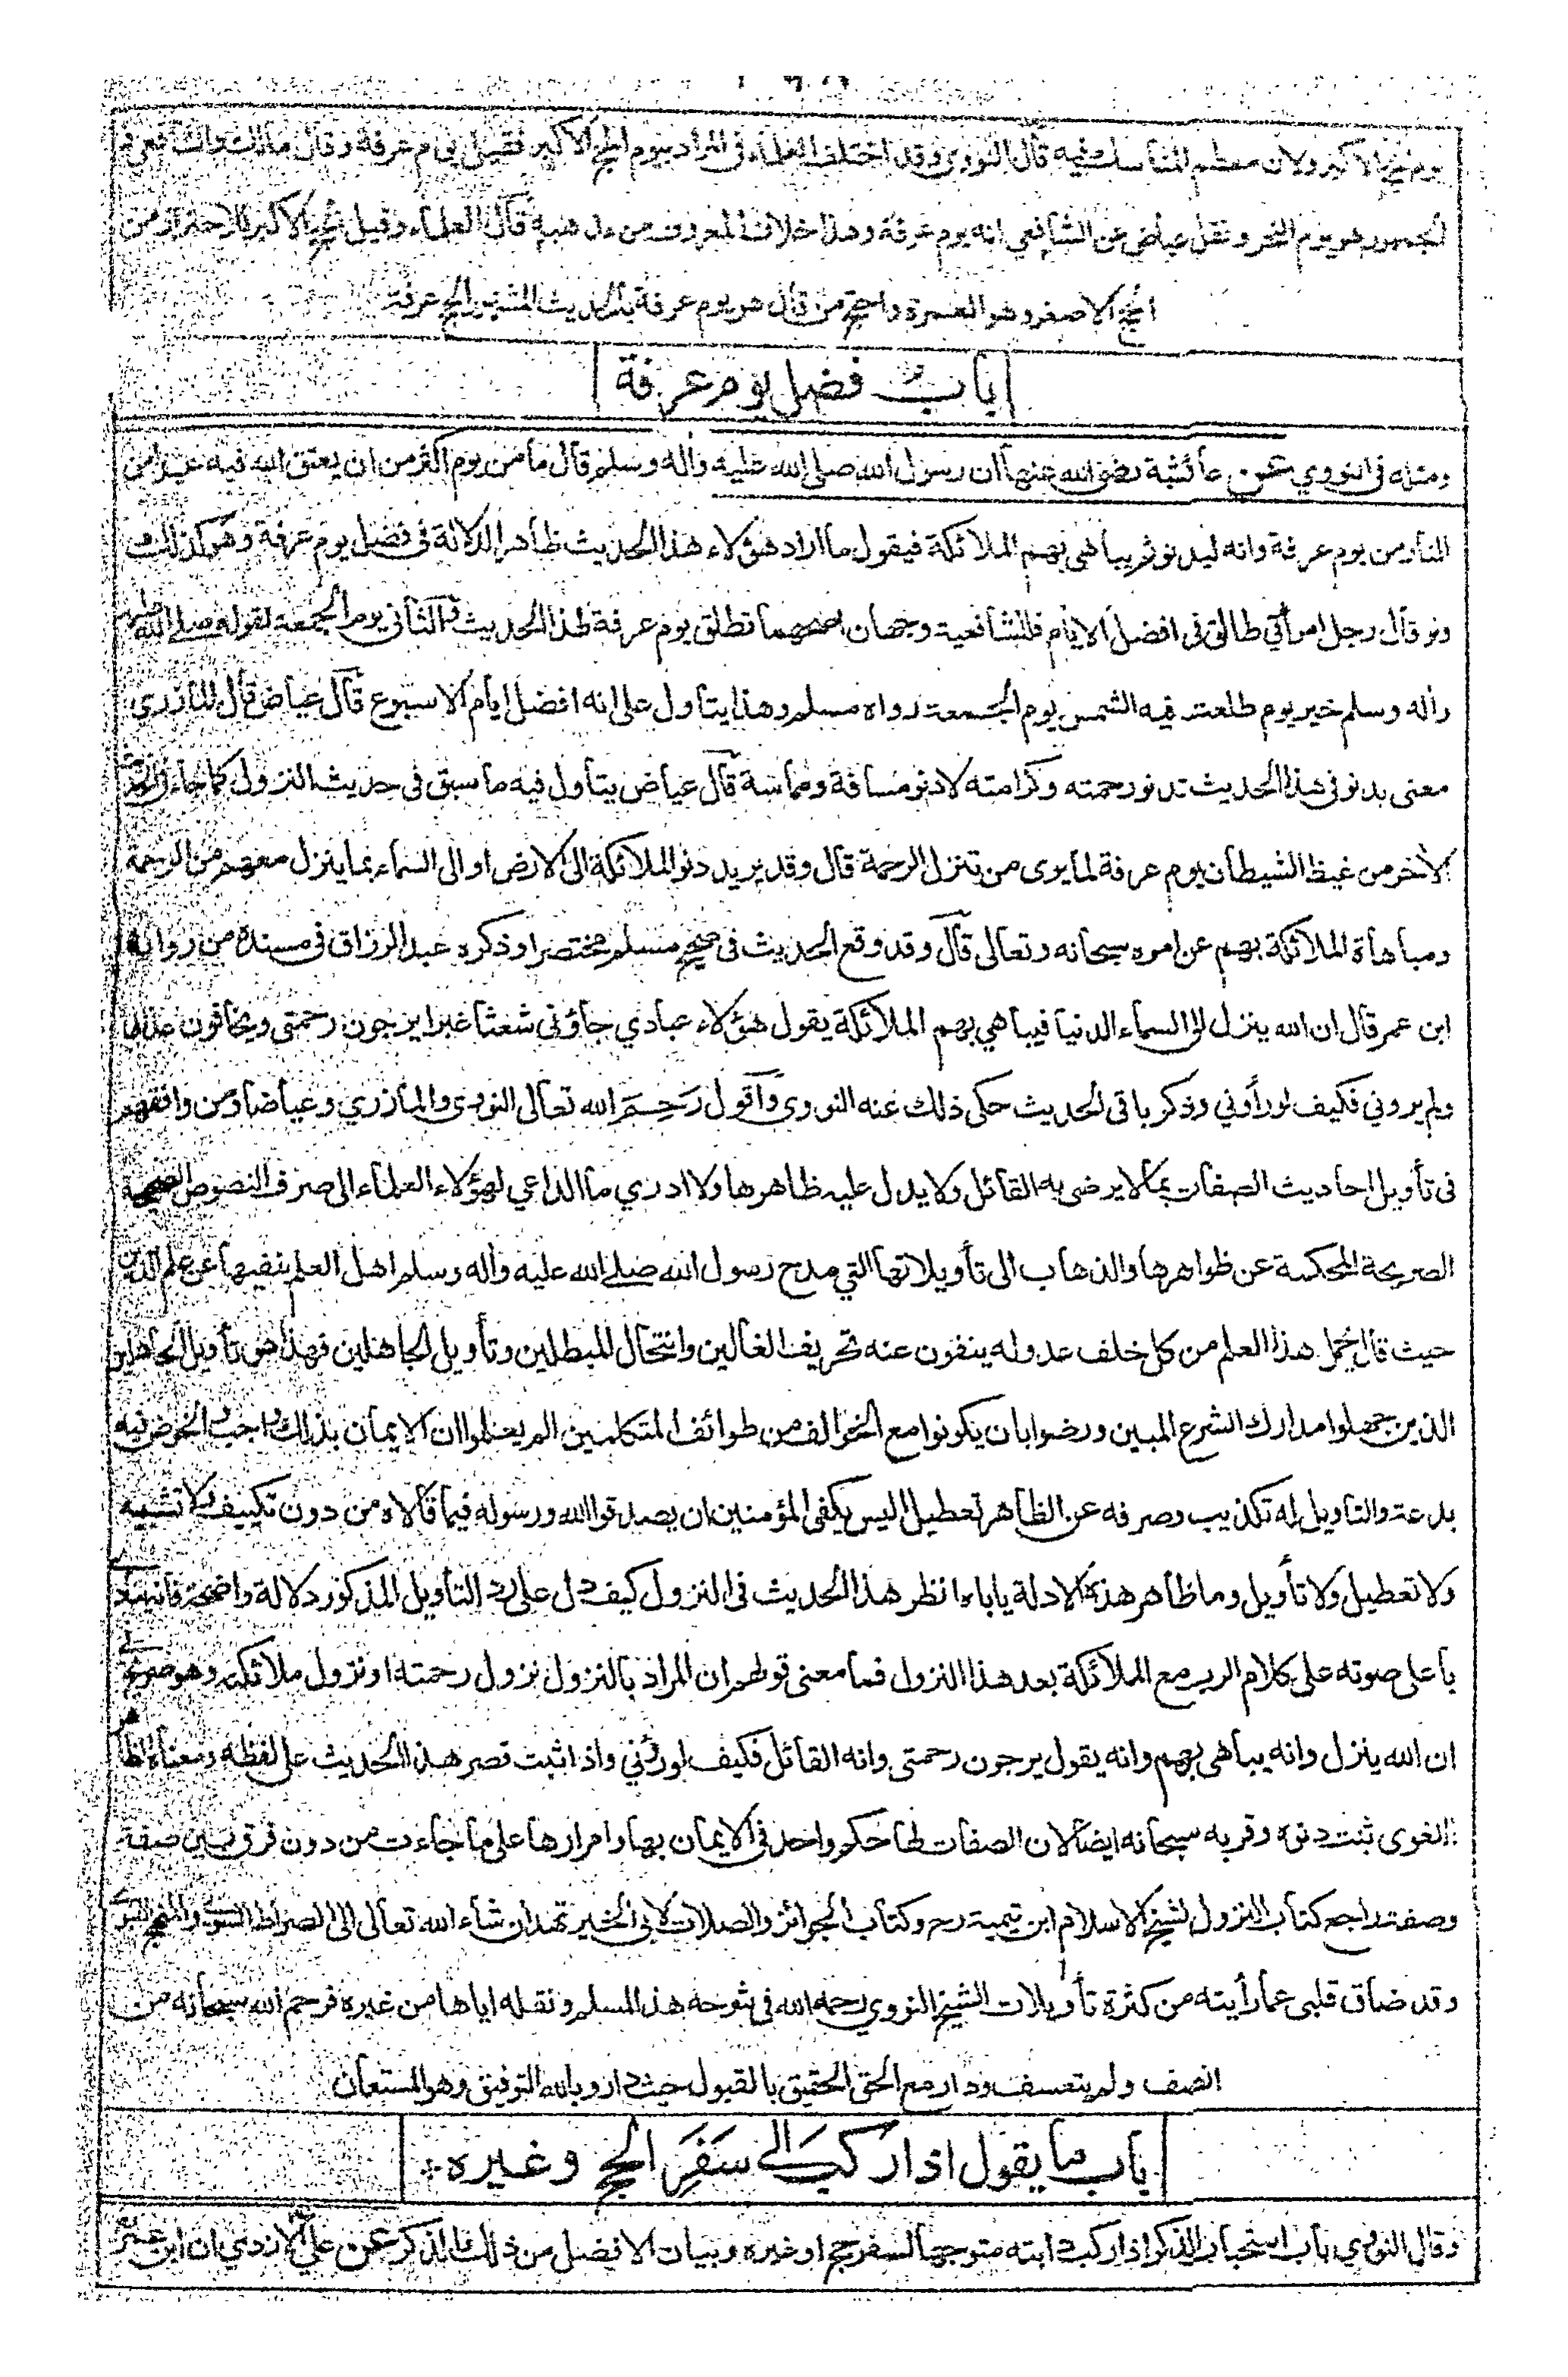 يوم الحج الاكبر ولان معظم المناسك فيه قال النووي وقد اختلف العلماء فى المراد بيوم الحج الاكبر فقيل يوم عرفة وقال مالك والشافعى و
الجمهور هو يوم النحر ونقل عياض عن الشافعي انه يوم عرفة وهذا خلاف المعروف من مذهبه قال العلماء وقيل الحج الاكبر للاحتراز من
الحج الاصغر وهو العمرة واحتج من قال هو يوم عرفة بالحديث المشهور الحج عرفة
باب فضل يوم عرفة
ومثله فى النووي عن عائشة رضى الله عنها ان رسول الله صلى الله عليه واله وسلم قال ما من يوم اكثر من ان يعتق الله فيه عبدا من
النار من يوم عرفة وانه ليدنو ثم يباهى بهم الملائكة فيقول ما اراد هؤلاء هذا الحديث ظاهر الدلالة فى فضل يوم عرفة وهو كذلك
ولو قال رجل امرأتي طالق فى افضل الايام فللشافعية وجهان اصحهما تطلق يوم عرفة لهذا الحديث والثانى يوم الجمعة لقوله صلى الله عليه
واله وسلم خير يوم طلعت فيه الشمس يوم الجمعة رواه مسلم وهذا يتأول على انه افضل ايام الاسبوع قال عياض قال المازري
معنى يدنو فى هذا الحديث تدنو رحمته وكرامته لا دنو مسافة ومماسة قال عياض يتأول فيه ما سبق فى حديث النزول كما جاء فى الحديث
الأخر من غيظ الشيطان يوم عرفة لما يرى من تنزل الرحمة قال وقد يريد دنو الملائكة الى الارض او الى السماء بما ينزل معهم من الرحمة
ومباهاة الملائكة بهم عن امره سبحانه وتعالى قال وقد وقع الحديث فى صحيح مسلم مختصرا وذكره عبد الرزاق فى مسنده من رواية
ابن عمر قال ان الله ينزل الى السماء الدنيا فيباهي بهم الملائكة يقول هؤلاء عبادي جاؤنى شعثا غبرا يرجون رحمتى ويخافون عذابى
ولم يروني فكيف لو رأوني وذكر باقى الحديث حكى ذلك عنه النووي وأقول رَحِمَ الله تعالى النووي والمازري وعياضا ومن وافقهم
فى تأويل احاديث الصفات بما لا يرضى به القائل ولا يدل عليه ظاهرها ولا ادري ما الداعي لهؤلاء العلماء الى صرف النصوص الصحيحة
الصريحة المحكمة عن ظواهرها والذهاب الى تأويلاتها التي مدح رسول الله صلى الله عليه واله وسلم اهل العلم بنفيها عن علم الدين
حيث قال يحمل هذا العلم من كل خلف عدوله ينفون عنه تحريف الغالين وانتحال المبطلين وتأويل الجاهلين فهذا هو تأويل الجاهلين
الذين جهلوا مدارك الشرع المبين ورضوا بان يكونوا مع الخوالف من طوائف المتكلمين الم يعلموا ان الايمان بذلك واجب والخوض فيه
بدعة والتاويل له تكذيب وصرفه عن الظاهر تعطيل اليس يكفى المؤمنين ان يصدقوا الله ورسوله فيما قالاه من دون تكييف ولا تشبيه
ولا تعطيل ولا تأويل وما ظاهر هذه الادلة ياباه انظر هذا الحديث فى النزول كيف دل على رد التأويل المذكور دلالة واضحة فانه ينادى
باعلى صوته على كلام الرب مع الملائكة بعد هذا النزول فما معنى قولهم ان المراد بالنزول نزول رحمته او نزول ملائكته وهو صريح فى
ان الله ينزل وانه يباهى بهم وانه يقول يرجون رحمتى وانه القائل فكيف لو رأوني واذا ثبت قصر هذا الحديث على لفظه ومعناه الظاهر
اللغوى ثبت دنوه وقربه سبحانه ايضا لان الصفات لها حكم واحد فى الايمان بها وامرارها على ما جاءت من دون فرق بين صفة
وصفة راجع كتاب النزول لشيخ الاسلام ابن تيمية رح وكتاب الجوائز والصلات لابى الخير تهد ان شاء الله تعالى الى الصراط السوي والمنهج
وقد ضاق قلبى عما رأيته من كثرة تأويلات الشيخ النووي رحمه الله فى شرحه هذا المسلم ونقله اياها من غيره فرحم الله سبحانه من
انصف ولم يتعسف ودار مع الحق الحقيق بالقبول حيث دار وبالله التوفيق وهو المستعان
باب ما يقول اذا ركب الى سَفَرِ الحج وغيره
وقال النووي باب استحباب الذكر اذا ركب دابته متوجها لسفر حج او غيره وبيان الافضل من ذلك الذكر عن علي الازدي ان ابن عمر